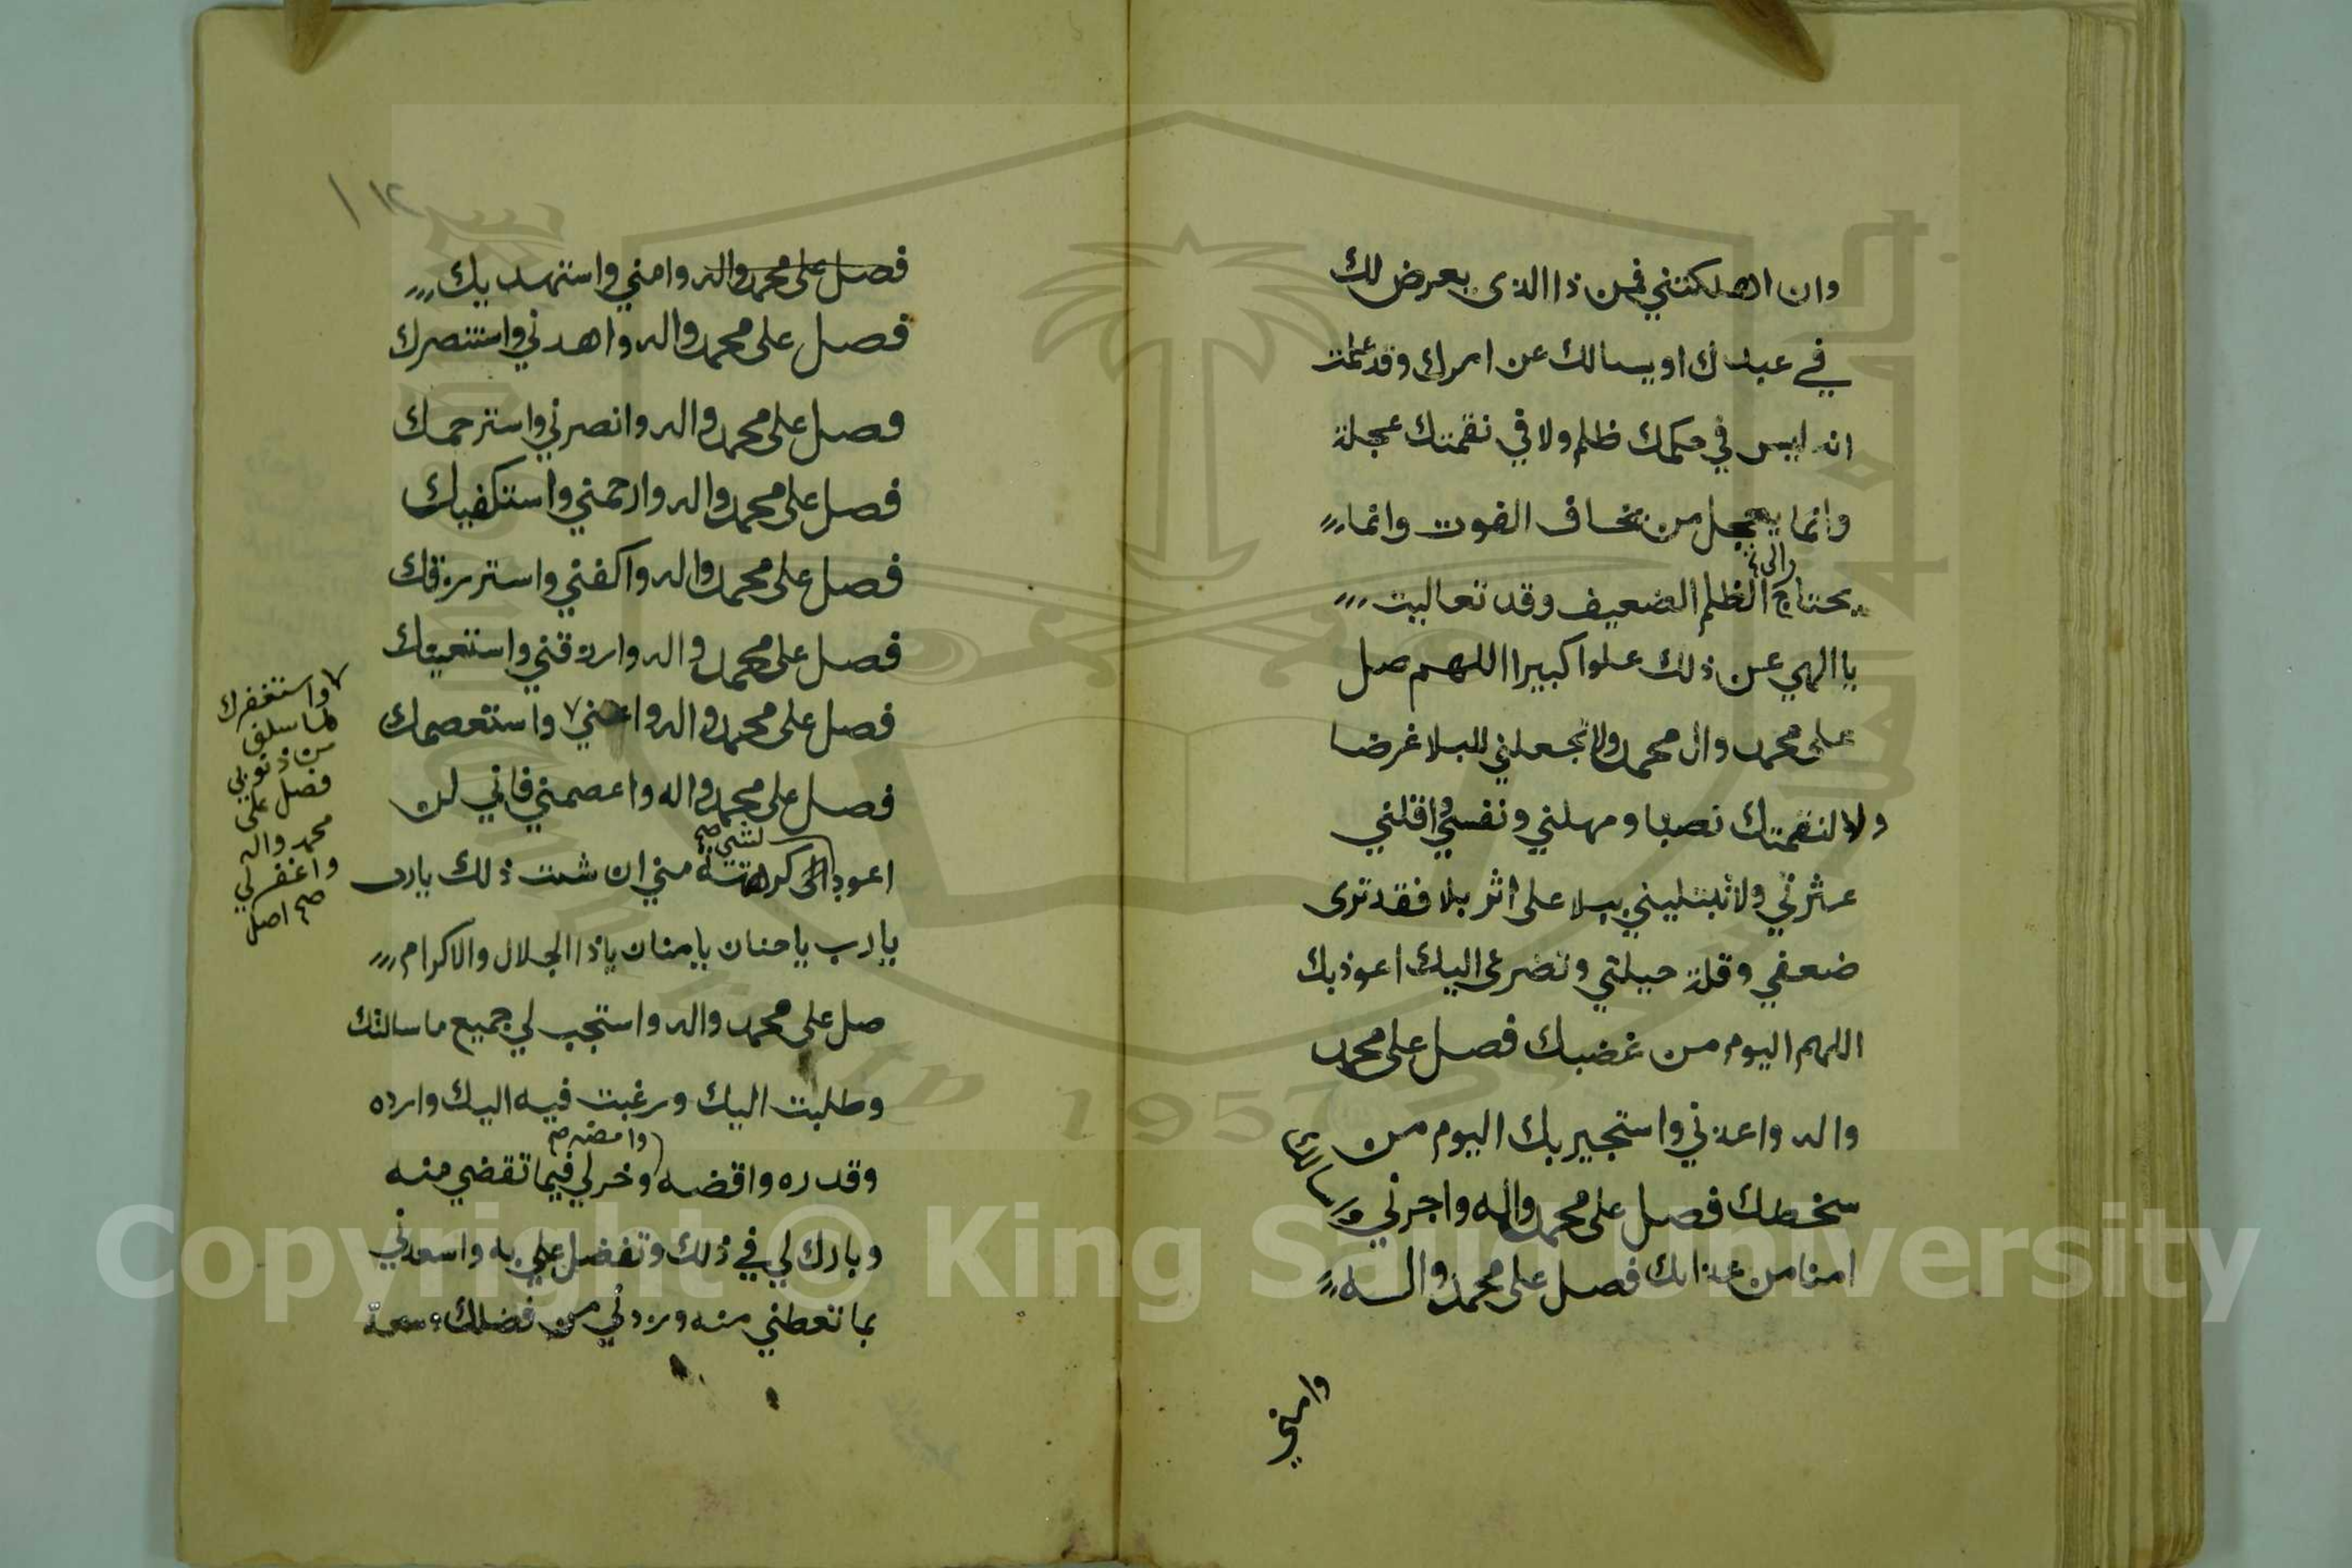 وان اهلكتني فمن ذا الذى يعرض لك
في عبدك او يسالك عن امرك وقد علمت
انه ليس في حكمك ظلم ولا في نقمتك عجلة
وانما يعجل من يخاف الفوت وانما
يحتاج الى الظلم الضعيف وقد تعاليت
يا الهي عن ذلك علوا كبيرا اللهم صل
على محمد وال محمد ولا تجعلني للبلا غرضا
ولا لنقمتك نصبا ومهلني ونفسني واقلني
عثرتي ولا تبتليني ببلا على اثر بلا فقد ترى
ضعفي وقلة حيلتي وتضرعى اليك اعوذ بك
اللهم اليوم من غضبك فصل على محمد
واله واعذني واستجير بك اليوم من
سخطك فصل على محمد واله واجرني واسالك
امنا من عذابك فصل على محمد واله
وامني
١٢
فصل على محمد واله وامني واستهديك
فصل على محمد واله واهدني واستنصرك
فصل على محمد واله وانصرني واسترحمك
فصل على محمد واله وارحمني واستكفيك
فصل على محمد واله واكفني واسترزقك
فصل على محمد واله وارزقني واستعينك
فصل على محمد واله واعني واستعصمك
واستغفرك
لما سلف
من ذنوبي
فصل على
محمد واله
واغفر لي
صح اصل
فصل على محمد واله واعصمني فاني لن
اعود لشي صح كرهته مني ان شئت ذلك يارب
يا رب يا حنان يا منان يا ذا الجلال والاكرام
صل على محمد واله واستجب لي جميع ما سالتك
وطلبت اليك ورغبت فيه اليك وارده
وقدره واقضه وامضه صح وخر لي فيما تقضي منه
وبارك لي في ذلك وتفضل علي به واسعدني
بما تعطني منه وزدني من فضلك وسعة
Copyright © King Saud University
1957